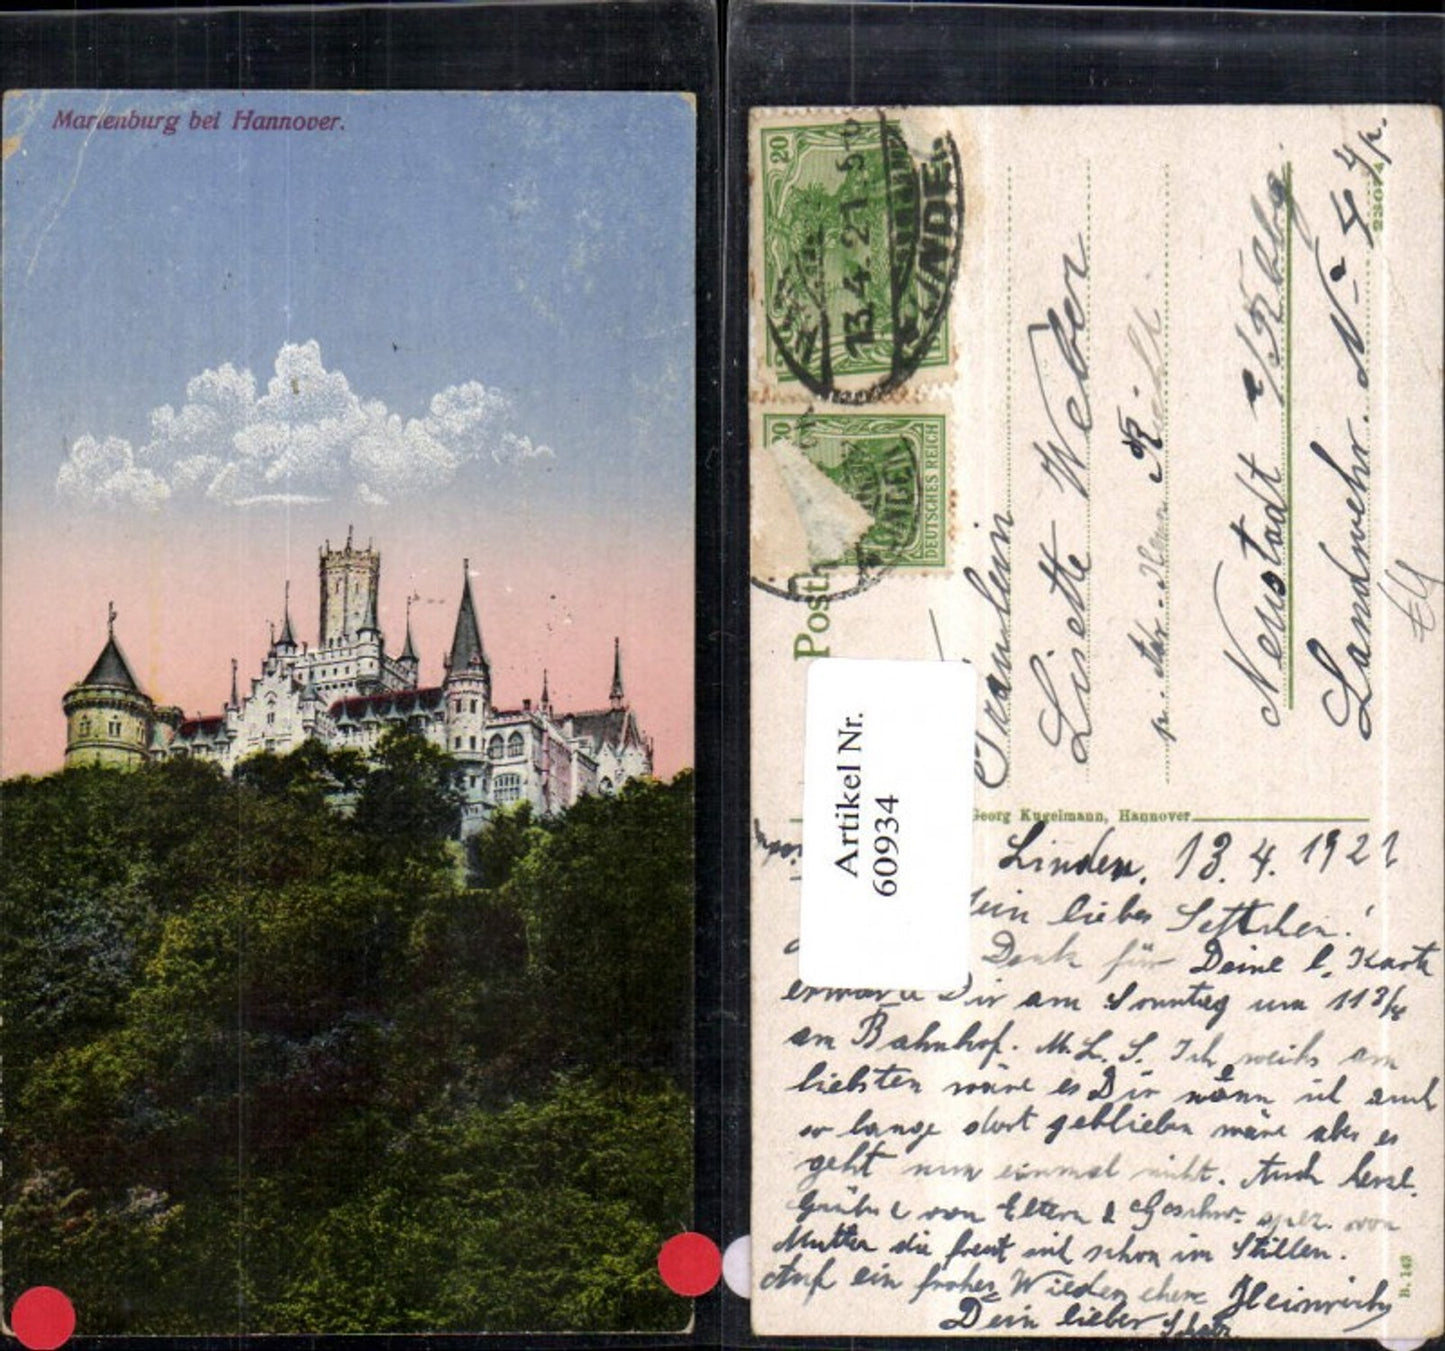 Marienburg bei Hannover.
20
13.4.21.5-
LINDEN
DEUTSCHES REICH
Post
Artikel Nr.
60934
Fräulein
Lisette Weber
Neustadt a/Rbg.
Landwehr. No 4
Georg Kugelmann, Hannover
B. 143
Linden, 13.4.1921
Mein liebes Settchen!
Dank für Deine l. Karte
erwarte Dir am Sonntag um 11 3/4
am Bahnhof. M. L. S. Ich weihs am
liebsten wäre es Dir wänn ich auch
so lange dort geblieben wäre aber es
geht nun einmal nicht. Auch herzl.
Grühse von Eltern & Geschw. spez. von
Mutter die freut sich schon im Stillen.
Auf ein frohes Wiedersehen Heinrich
Dein lieber Schatz